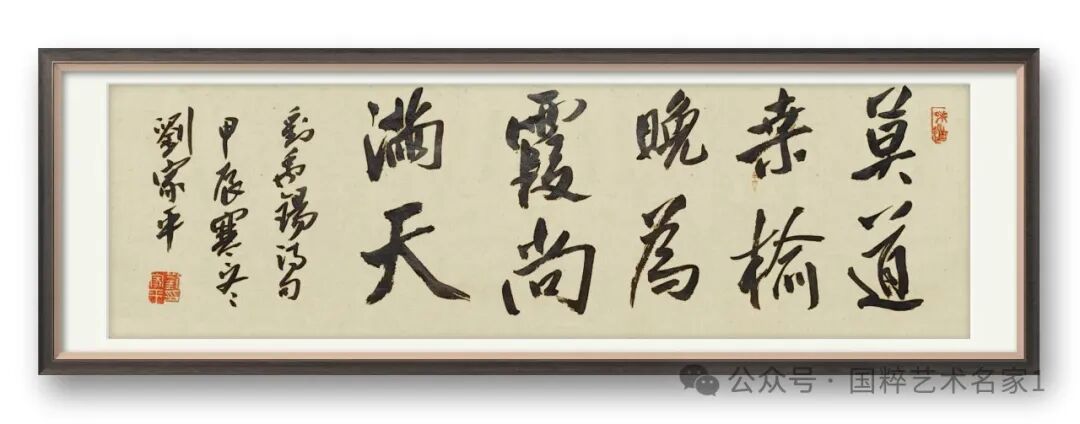 莫道
桑榆
晚為
霞尚
滿天
劉禹錫詩句
甲辰寒冬
劉家平
公众号 · 国粹艺术名家1